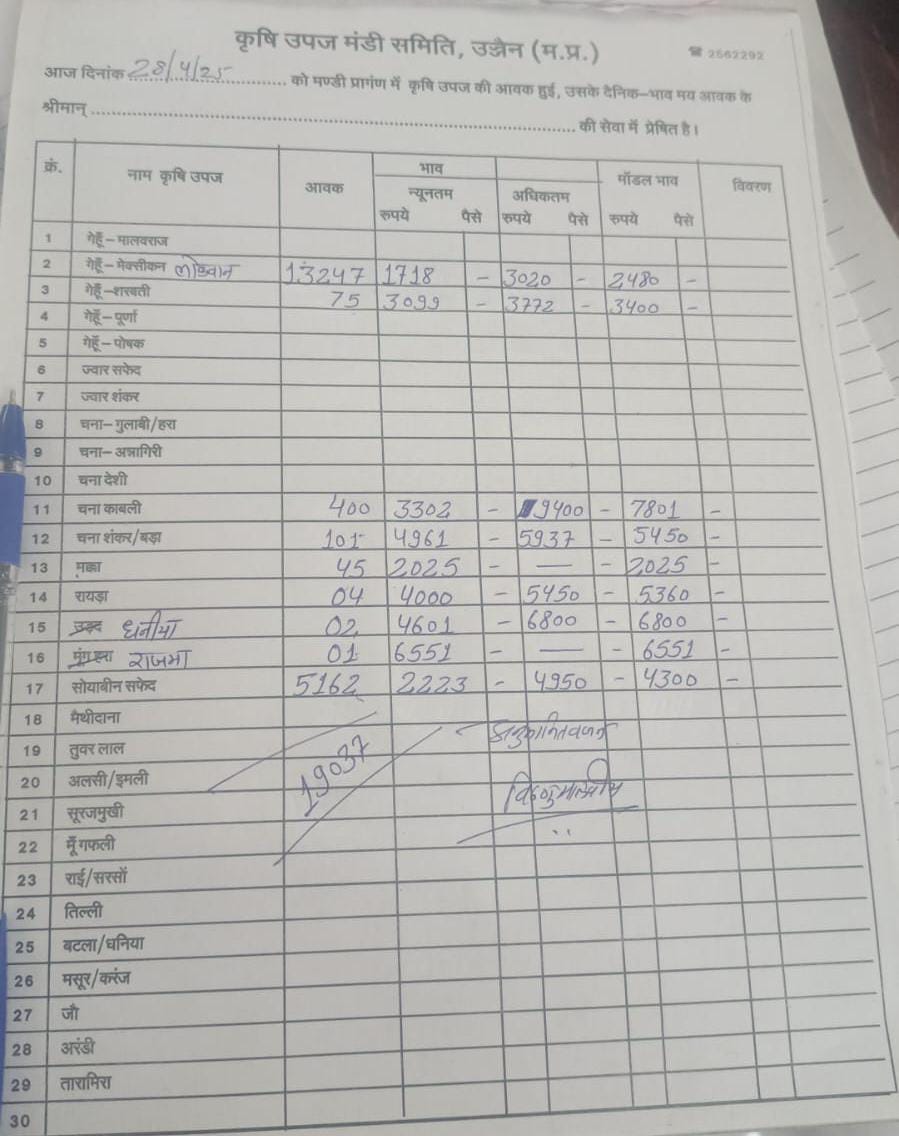 कृषि उपज मंडी समिति, उज्जैन (म.प्र.)
☎ 2562292
आज दिनांक 28/4/25 को मण्डी प्रागंण में कृषि उपज की आवक हुई, उसके दैनिक-भाव मय आवक के
श्रीमान् ........ की सेवा में प्रेषित है।
क्रं. नाम कृषि उपज आवक भाव मॉडल भाव विवरण
न्यूनतम अधिकतम
रुपये पैसे रुपये पैसे रुपये पैसे
1 गेहूँ-मालवराज
2 गेहूँ-मेक्सीकन लोकवान 13247 1718 - 3020 - 2480 -
3 गेहूँ-शरबती 75 3099 - 3772 - 3400 -
4 गेहूँ-पूर्णा
5 गेहूँ-पोषक
6 ज्वार सफेद
7 ज्वार शंकर
8 चना-गुलाबी/हरा
9 चना-अन्नागिरी
10 चना देशी
11 चना काबली 400 3302 - 9400 - 7801 -
12 चना शंकर/बड़ा 101 4961 - 5937 - 5450 -
13 मक्का 45 2025 - — - 2025 -
14 रायड़ा 04 4000 - 5450 - 5360 -
15 उड़द धनीया 02 4601 - 6800 - 6800 -
16 मूंग हरा राजमा 01 6551 - — - 6551 -
17 सोयाबीन सफेद 5162 2223 - 4950 - 4300 -
18 मैथीदाना
19 तुवर लाल
19037
20 अलसी/इमली
21 सूरजमुखी
22 मूँगफली
23 राई/सरसों
24 तिल्ली
25 बटला/धनिया
26 मसूर/करंज
27 जौ
28 अरंडी
29 तारामिरा
30